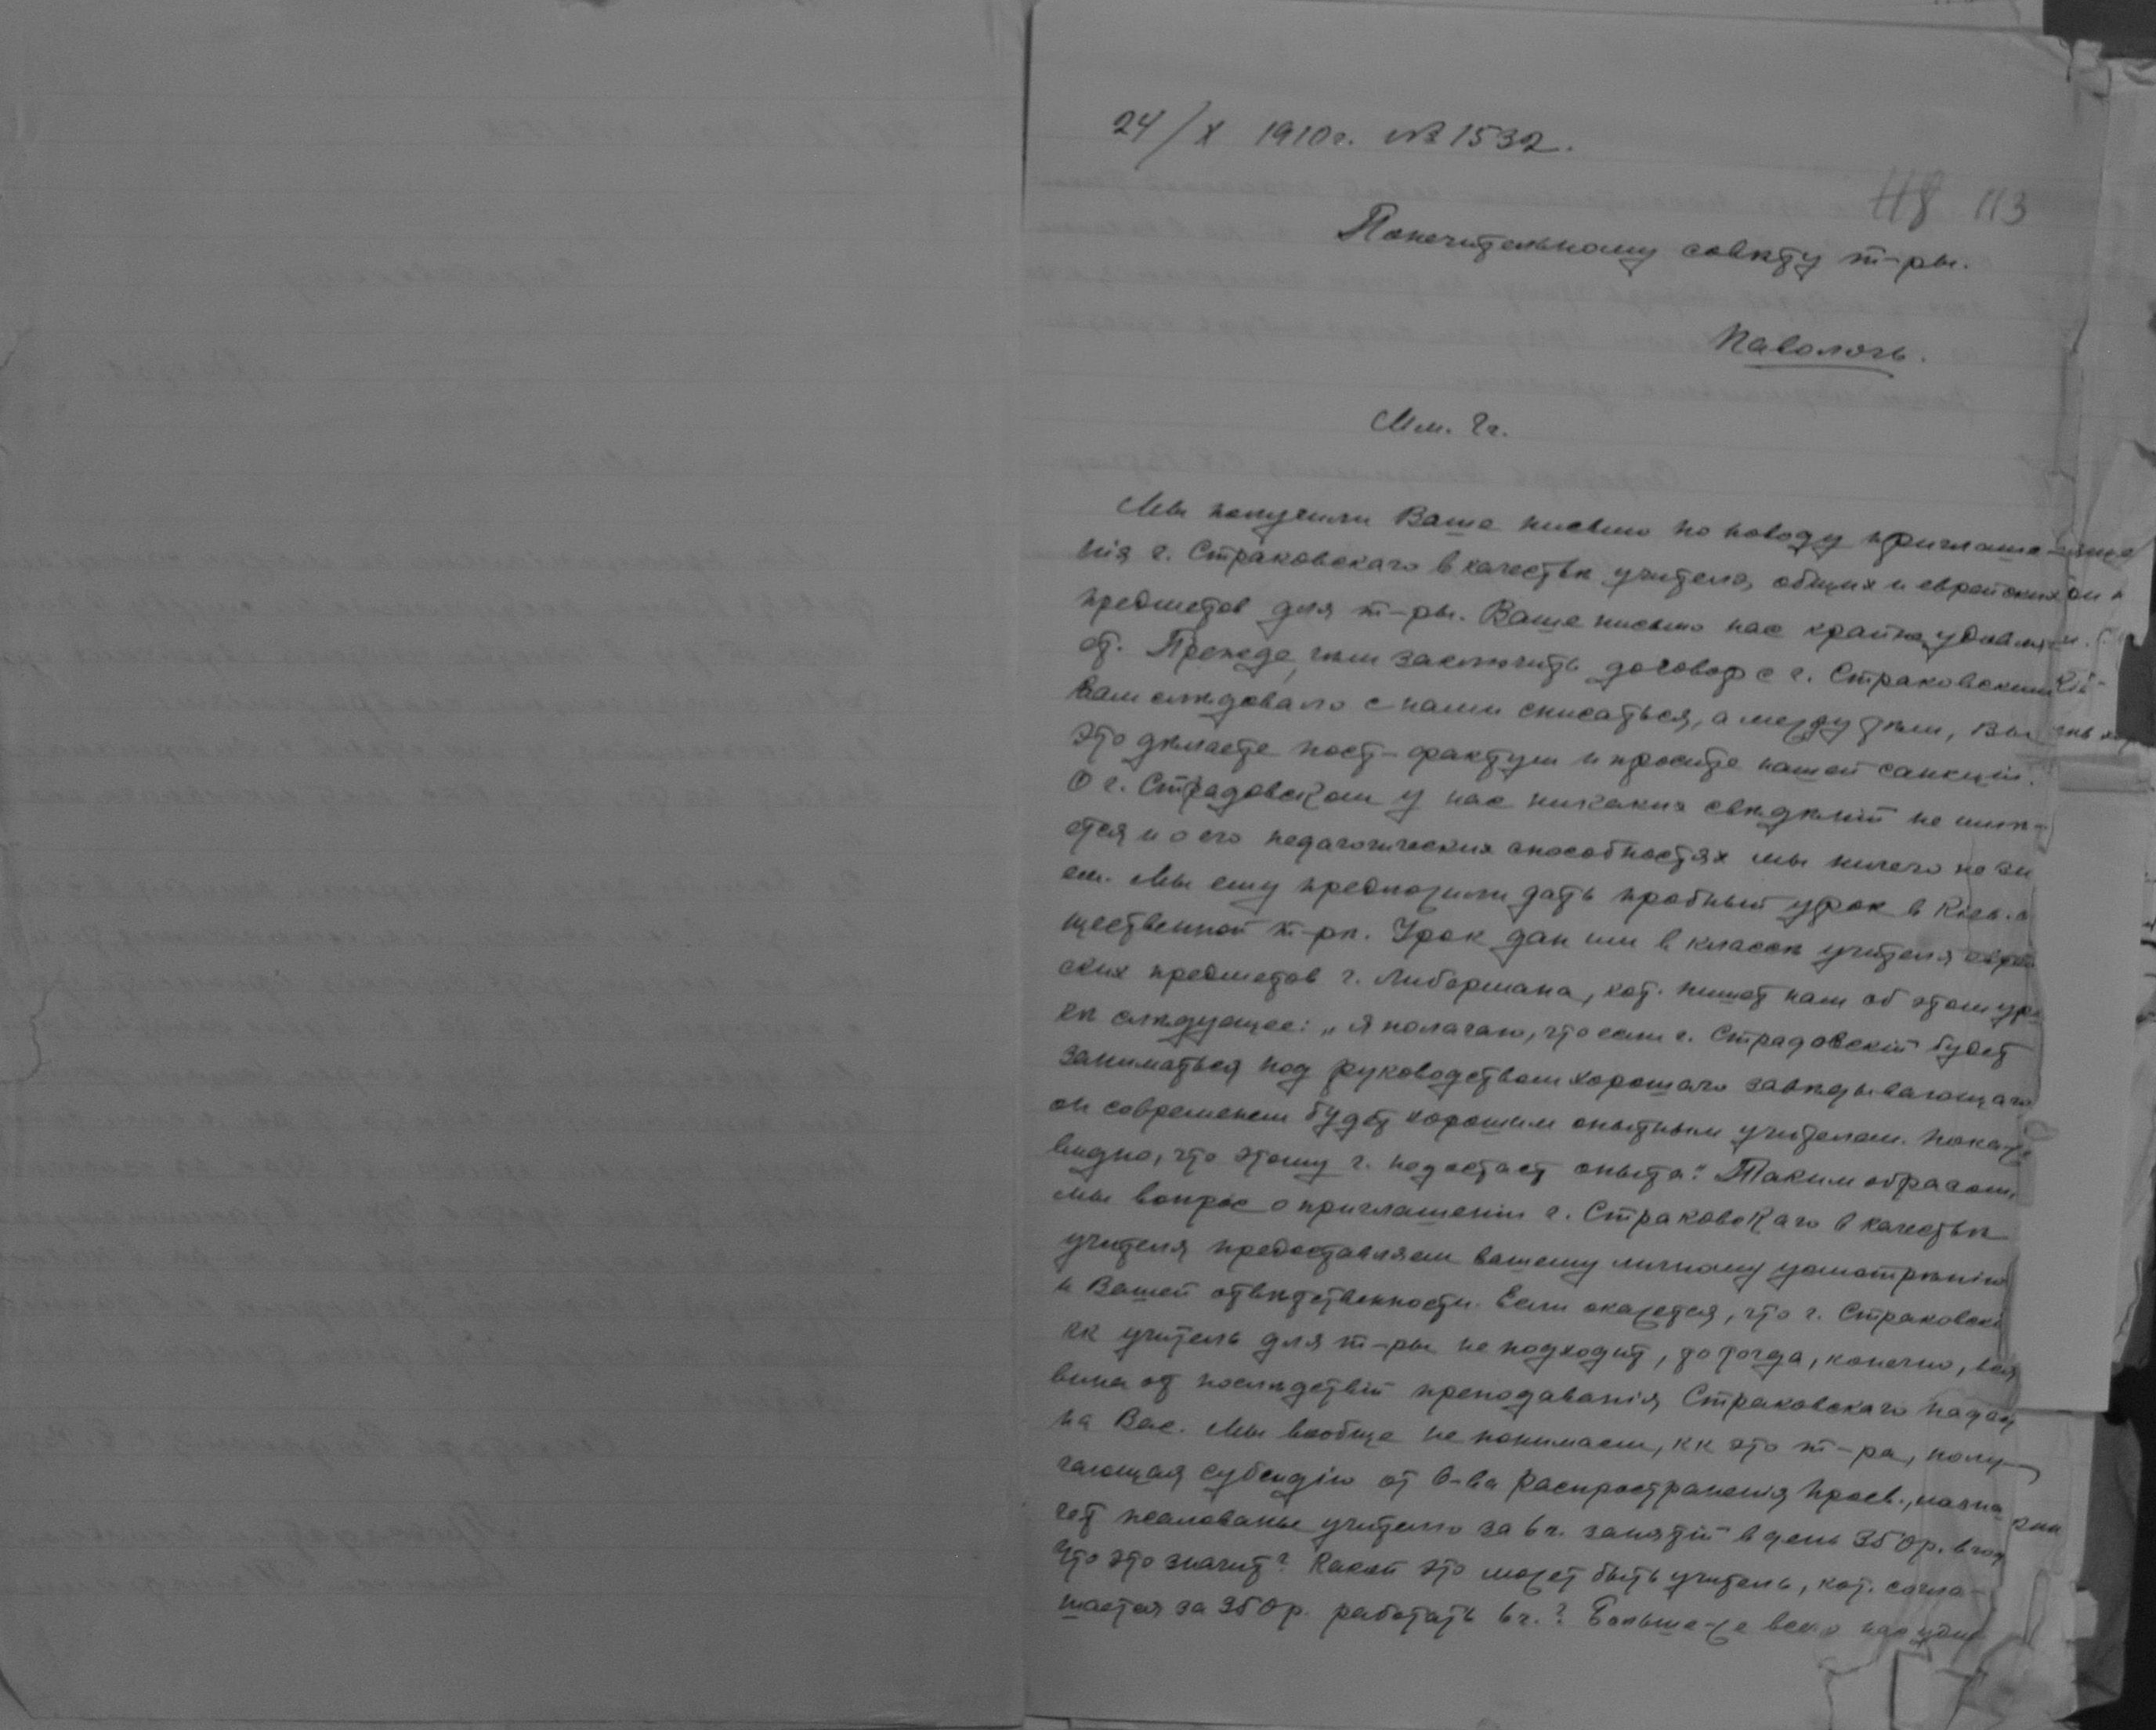 24/X 1910 г. № 1532.
118 113
Попечительному совѣту т-ры.
Паволочь.
Мм. Гг.
Мы получили Ваше письмо по поводу приглаше-
нія г. Страковскаго в качествѣ учителя, общих и еврейских
предметов для т-ры. Ваше письмо нас крайне удивля-
ет. Прежде, чѣм заключить договор с г. Страковским
Вам слѣдовало с нами списаться, а между тѣм, Вы
это дѣлаете пост-фактум и просите нашей санкціи.
О г. Страдовском у нас никаких свѣдѣній не имѣ-
ется и о его педагогических способностях мы ничего не зн
ем. Мы ему предложили дать пробный урок в Кіев. о
щественной т-рѣ. Урок дан им в классѣ учителя еврей
ских предметов г. Либермана, кот. пишет нам об этом уро
кѣ слѣдующее: „я полагаю, что если г. Страдовскій будет
заниматься под руководством хорошаго завѣдывающаго
он современем будет хорошим опытным учителем. Пока же
видно, что этому г. недостает опыта." Таким образом,
мы вопрос о приглашеніи г. Страковскаго в качествѣ
учителя предоставляем вашему личному усмотрѣнію
и Вашей отвѣтственности. Если окажется, что г. Страковскі
кк учитель для т-ры не подходит, то тогда, конечно, вся
вина от послѣдствій преподаванія Страковскаго падает
на Вас. Мы вообще не понимаем, кк это т-ра, полу-
чающая субсидію от О-ва Распространенія Просв., назна-
чет жалованье учителю за 6 ч. занятій в день 350 р. в год
Что это значит? Какой это может быть учитель, кот. согла-
шается за 350 р. работать 6 ч.? Больше-же всего нас удив